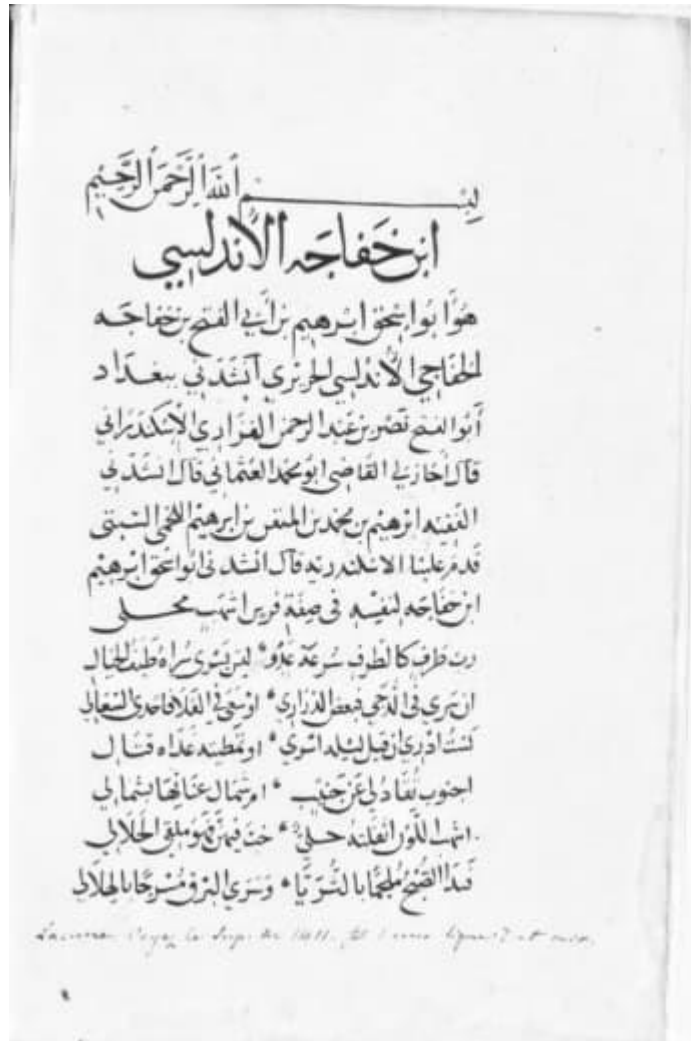 بسم الله الرحمن الرحيم
ابن خفاجه الاندلسي
هو ابو اسحق ابرهيم بن أبي الفتح بن خفاجه
الخفاجي الأندلسي الجزيري أنشدني ببغداد
أبو الفتح نصر بن عبد الرحمن الفزاري الاسكندراني
قال اجاز لي القاضي ابو محمد العثماني قال انشدني
الفقيه ابرهيم بن محمد بن ابرهيم اللخمي السبتي
قدم علينا الاسكندريه قال انشدني ابو اسحق ابرهيم
ابن خفاجه لنفسه في صفة فرس اشهب محلى
رب طرف كالطرف سرعة عدو ليس يسري سراه طيف الخيال
ان سرى في الدجى فبعض الدراري او سعى في الفلا فاحدى السعالي
لست ادري ان قيل ليله اسري او تمطيته غداه قتال
اجنوب تقاد لي عن جنيب ام شمال عنانها بشمالي
اشهب اللون اثقلته حلي خب فيهن فهو ملقى الجلال
فبدا الصبح ملجما بالثريا وسرى البرق مسرجا بالهلال
Lacune. Voyez le